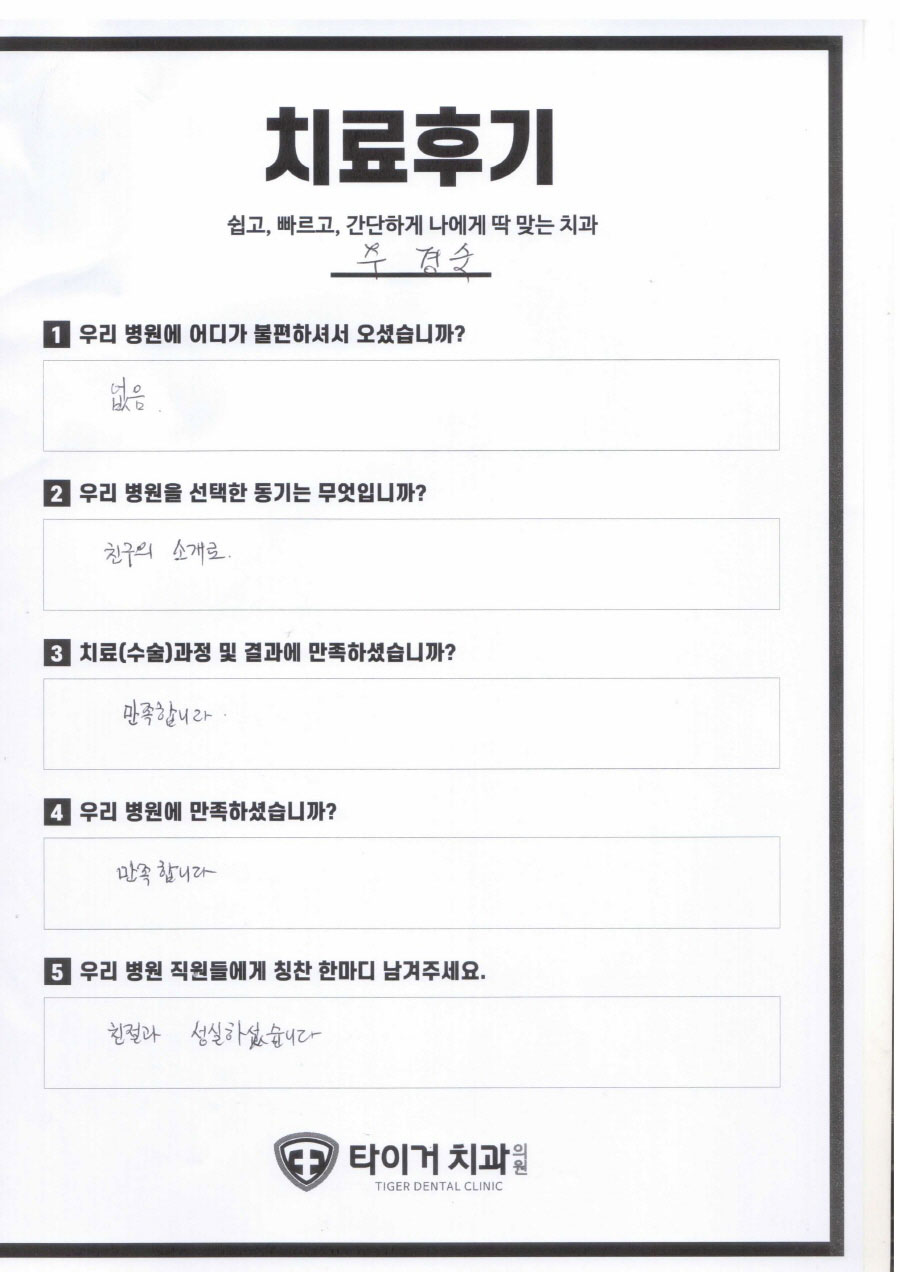 치료후기
쉽고, 빠르고, 간단하게 나에게 딱 맞는 치과
주 경숙
1 우리 병원에 어디가 불편하셔서 오셨습니까?
없음.
2 우리 병원을 선택한 동기는 무엇입니까?
친구의 소개로.
3 치료(수술)과정 및 결과에 만족하셨습니까?
만족합니다.
4 우리 병원에 만족하셨습니까?
만족합니다
5 우리 병원 직원들에게 칭찬 한마디 남겨주세요.
친절과 성실하셨습니다
타이거 치과의원
TIGER DENTAL CLINIC